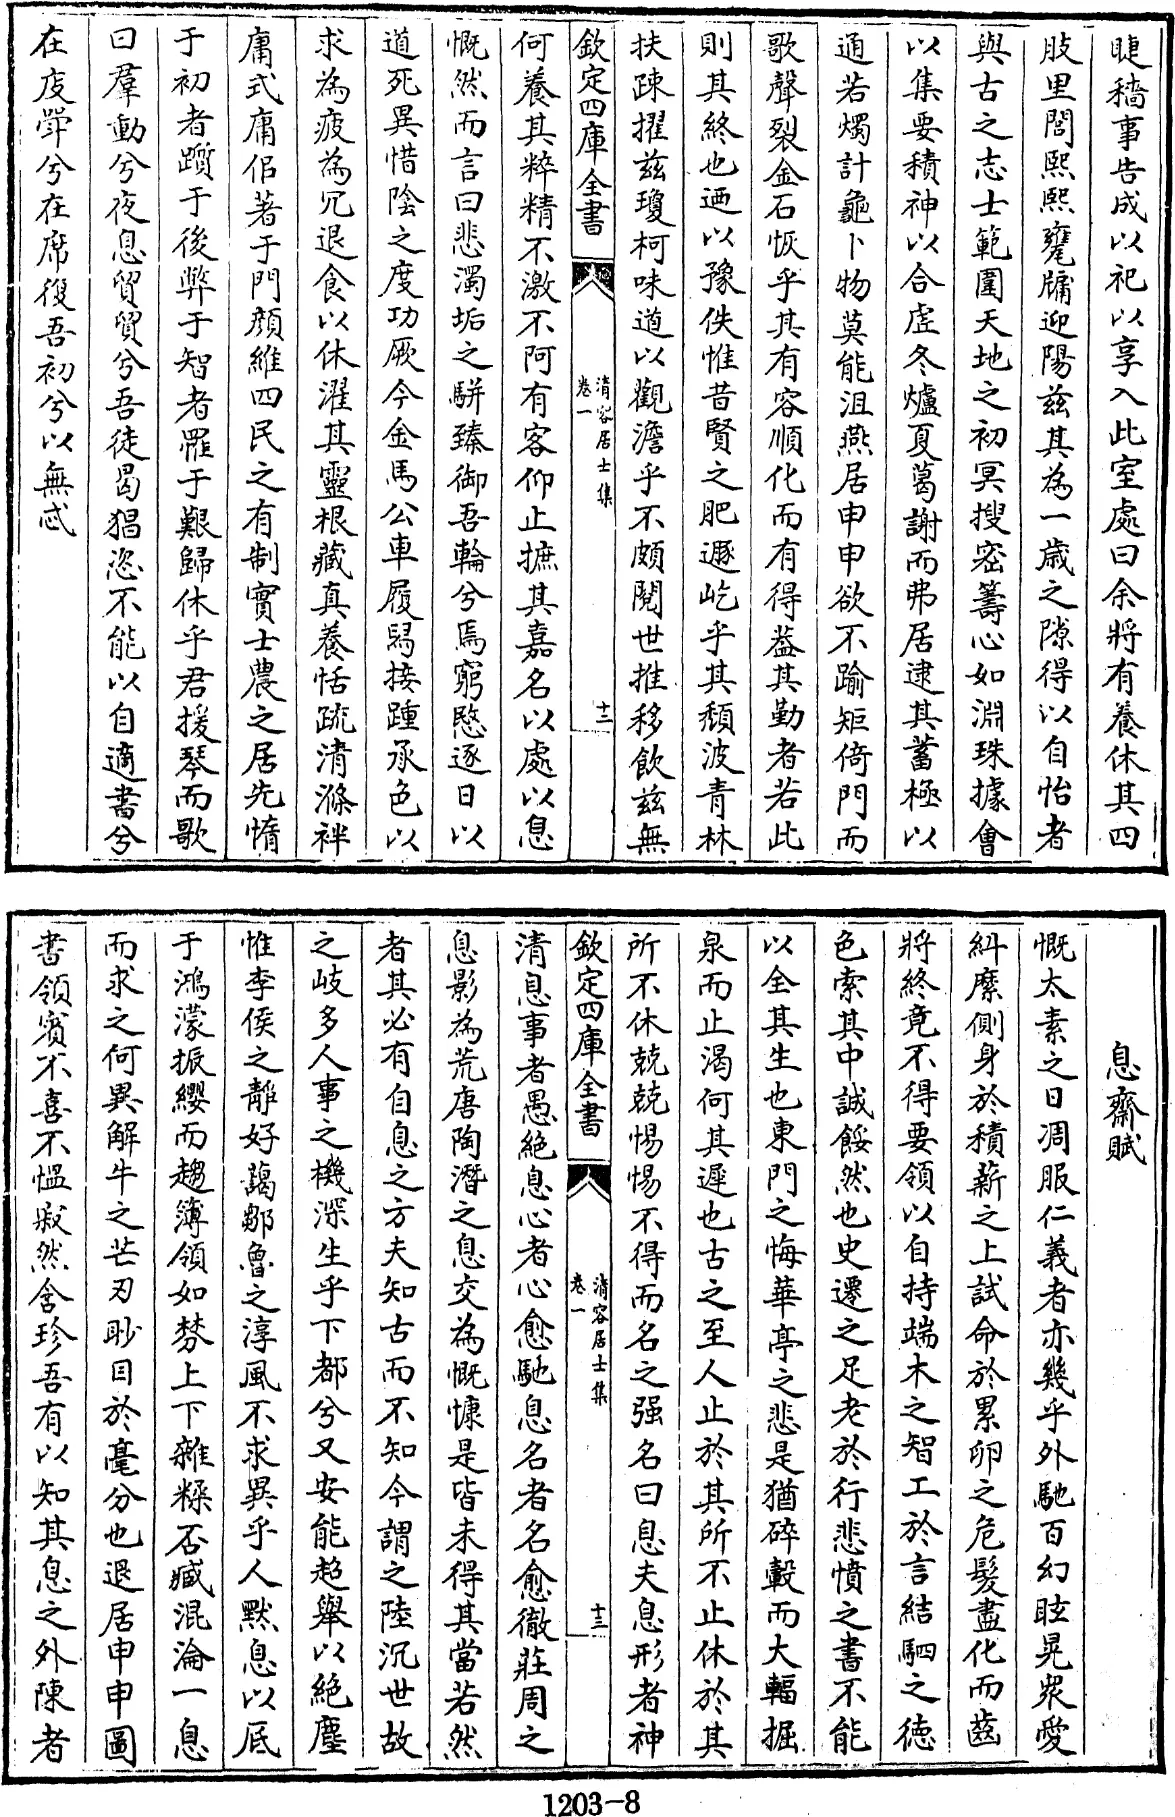 睫穡事告成以祀以享入此室處曰余將有養休其四
肢里閭熙熙甕牖迎陽兹其為一歳之隙得以自怡者
與古之志士範圍天地之初冥搜宻籌心如淵珠據會
以集要積神以合虗冬爐夏葛謝而弗居逮其蓄極以
通若燭計龜卜物莫能沮燕居申申欲不踰矩倚門而
歌聲裂金石恢乎其有容順化而有得益其勤者若此
則其終也迺以豫佚惟昔賢之肥遯屹乎其頹波青林
扶疎擢兹瓊柯味道以觀澹乎不頗閱世推移飲兹無
欽定四庫全書
清容居士集
卷一
十三
何養其粹精不激不阿有客仰止摭其嘉名以處以息
慨然而言曰悲濁垢之駢臻御吾輪兮焉窮愍逐日以
道死異惜陰之度功厥今金馬公車履舄接踵承色以
求為疲為冗退食以休濯其靈根藏真養恬疏清滌袢
庸式庸侶著于門顔維四民之有制實士農之居先惰
于初者躓于後弊于智者罹于艱歸休乎君援琴而歌
曰羣動兮夜息貿貿兮吾徒曷猖恣不能以自適書兮
在庋斝兮在席復吾初兮以無忒
息齋賦
慨太素之日凋服仁義者亦幾乎外馳百幻眩晃衆愛
糾縻側身於積薪之上試命於累卵之危髮盡化而齒
將終竟不得要領以自持端木之智工於言結駟之徳
色索其中誠餒然也史遷之足老於行悲憤之書不能
以全其生也東門之悔華亭之悲是猶碎轂而大輻掘
泉而止渴何其遲也古之至人止於其所不止休於其
所不休兢兢惕惕不得而名之强名曰息夫息形者神
欽定四庫全書
清容居士集
卷一
十三
清息事者愚絶息心者心愈馳息名者名愈徹莊周之
息影為荒唐陶潛之息交為慨慷是皆未得其當若然
者其必有自息之方夫知古而不知今謂之陸沉世故
之岐多人事之機深生乎下都兮又安能超舉以絶塵
惟李侯之靜好藹鄒魯之淳風不求異乎人黙息以底
于鴻濛振纓而趨簿領如棼上下雜糅否臧混淪一息
而求之何異解牛之芒刃眇目於毫分也退居申申圖
書領賓不喜不愠寂然含珍吾有以知其息之外陳者
1203-8